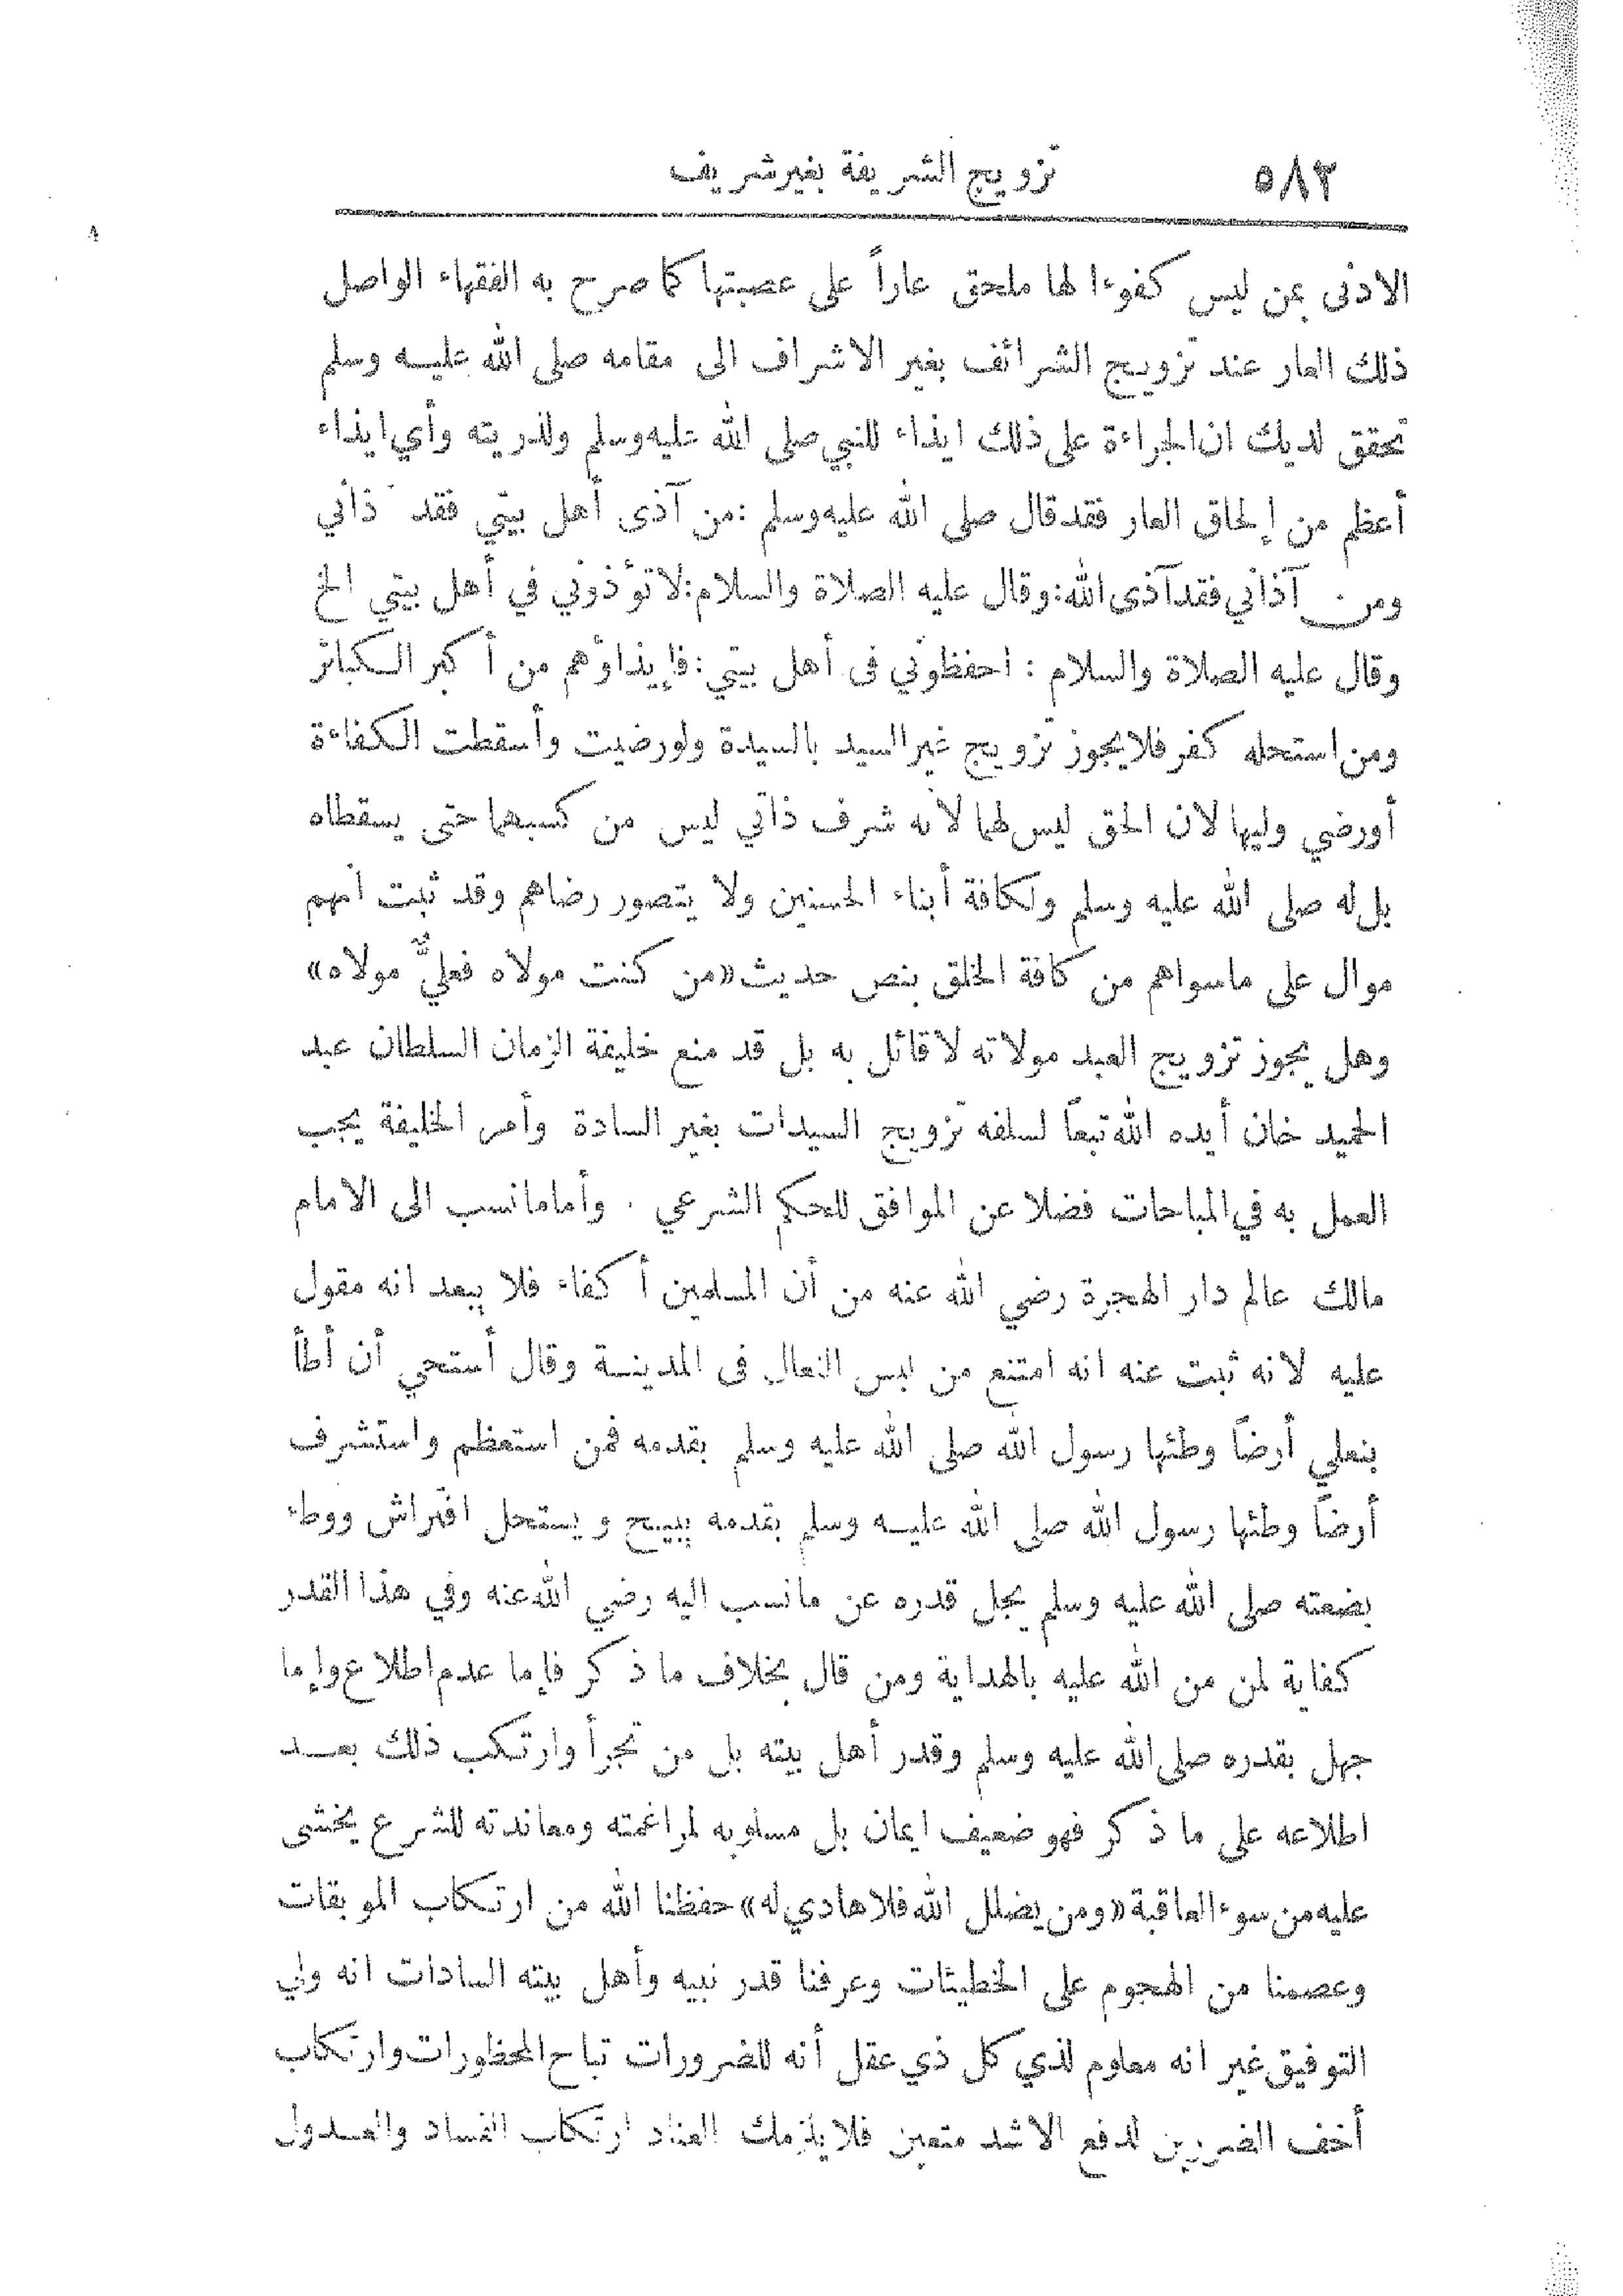 ٥٨٢ تزويج الشريفة بغير شريف
الادنى بمن ليس كفوءا لها ملحق عاراً على عصبتها كما صرح به الفقهاء الواصل
ذلك العار عند تزويج الشرائف بغير الاشراف الى مقامه صلى الله عليه وسلم
تحقق لديك ان الجراءة على ذلك ايذاء للنبي صلى الله عليه وسلم ولذريته وأي ايذاء
أعظم من إلحاق العار فقد قال صلى الله عليه وسلم : من آذى أهل بيتي فقد آذاني
ومن آذاني فقد آذى الله: وقال عليه الصلاة والسلام: لا تؤذوني في أهل بيتي الخ
وقال عليه الصلاة والسلام : احفظوني في أهل بيتي : فإيذاؤهم من أكبر الكبائر
ومن استحله كفر فلا يجوز تزويج غير السيد بالسيدة ولو رضيت وأسقطت الكفاءة
أو رضي وليها لان الحق ليس لهما لانه شرف ذاتي ليس من كسبهما حتى يسقطاه
بل له صلى الله عليه وسلم ولكافة أبناء الحسنين ولا يتصور رضاهم وقد ثبت انهم
موال على ما سواهم من كافة الخلق بنص حديث «من كنت مولاه فعليٌّ مولاه»
وهل يجوز تزويج العبد مولاته لا قائل به بل قد منع خليفة الزمان السلطان عبد
الحميد خان أيده الله تبعاً لسلفه تزويج السيدات بغير السادة وأمر الخليفة يجب
العمل به في المباحات فضلا عن الموافق للحكم الشرعي . وأما ما نسب الى الامام
مالك عالم دار الهجرة رضي الله عنه من أن المسلمين أكفاء فلا يبعد انه مقول
عليه لانه ثبت عنه انه امتنع من لبس النعال في المدينة وقال أستحي أن أطأ
بنعلي أرضاً وطئها رسول الله صلى الله عليه وسلم بقدمه فمن استعظم واستشرف
أرضاً وطئها رسول الله صلى الله عليه وسلم بقدمه يبيح ويستحل افتراش ووطء
بضعته صلى الله عليه وسلم يجل قدره عن ما نسب اليه رضي الله عنه وفي هذا القدر
كفاية لمن من الله عليه بالهداية ومن قال بخلاف ما ذكر فإما عدم اطلاع وإما
جهل بقدره صلى الله عليه وسلم وقدر أهل بيته بل من تجرأ وارتكب ذلك بعد
اطلاعه على ما ذكر فهو ضعيف ايمان بل مسلوبه لمراغمته ومعاندته للشرع يخشى
عليه من سوء العاقبة «ومن يضلل الله فلا هادي له» حفظنا الله من ارتكاب الموبقات
وعصمنا من الهجوم على الخطيئات وعرفنا قدر نبيه وأهل بيته السادات انه ولي
التوفيق غير انه معلوم لذي كل ذي عقل أنه للضرورات تباح المحظورات وارتكاب
أخف الضررين لدفع الاشد متعين فلا يلزمك العناد ارتكاب الفساد والعدول